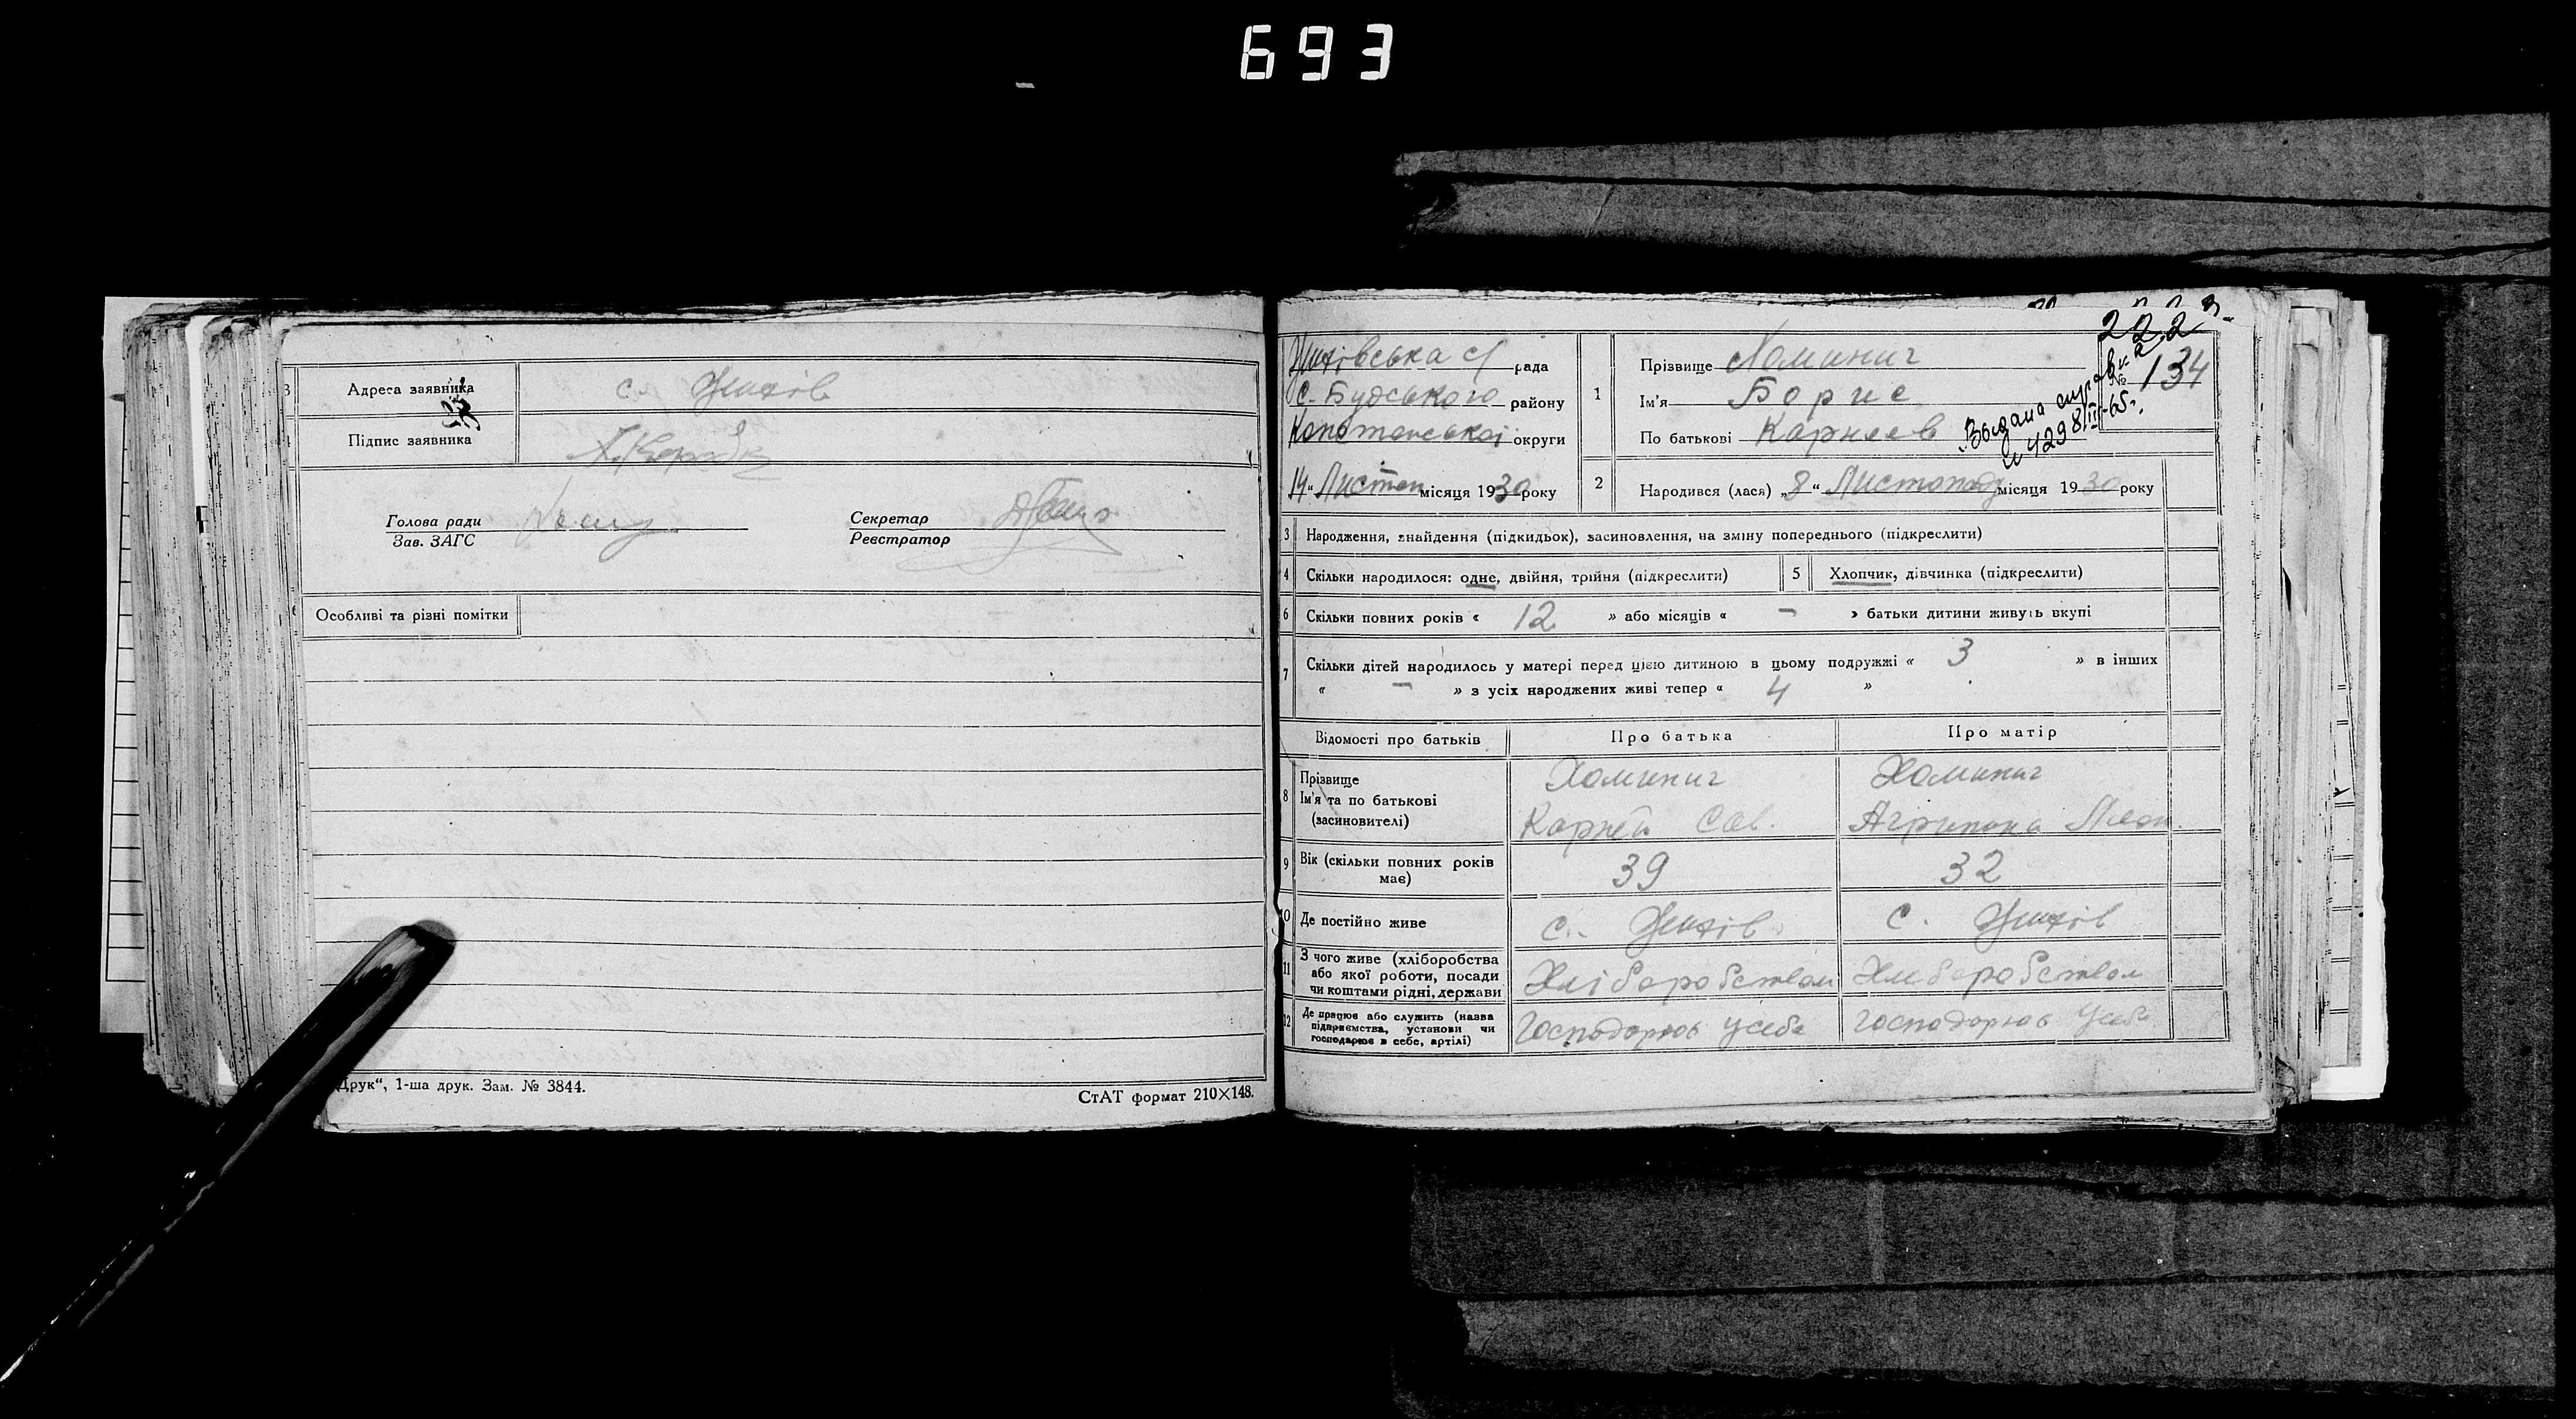 693
3 Адреса заявника с. Жихів
Підпис заявника
Голова ради
Зав. ЗАГС
Секретар
Реєстратор
Особливі та різні помітки
Друк“, 1-ша друк. Зам. № 3844.
СтАТ формат 210×148.
222
Жихівська с/ рада
С.-Будського району
Конотопської округи
14 „ Листоп місяця 1930 року
1 Прізвище Хоминич
Ім'я Борис
По батькові Карнеев
№ 134
Выдана справка
№ 4298/II-65г.
2 Народився (лася) „8“ Листопаду місяця 1930 року
3 Народження, знайдення (підкидьок), засиновлення, на зміну попереднього (підкреслити)
4 Скільки народилося: одне, двійня, трійня (підкреслити) 5 Хлопчик, дівчинка (підкреслити)
6 Скільки повних років « 12 » або місяців « – » батьки дитини живуть вкупі
7 Скільки дітей народилось у матері перед цією дитиною в цьому подружжі « 3 » в інших
« – » з усіх народжених живі тепер « 4 »
Відомості про батьків Про батька Про матір
8 Прізвище Хоминич Хоминич
Ім'я та по батькові
(засиновителі) Карней Сав. Агрипина
9 Вік (скільки повних років
має) 39 32
10 Де постійно живе с. Жихів с. Жихів
11 З чого живе (хліборобства
або якої роботи, посади
чи коштами рідні, держави Хліборобством Хлиборобством
12 Де працює або служить (назва
підприємства, установи чи
господарює в себе, артілі) Господорює усебе Господорює усебе